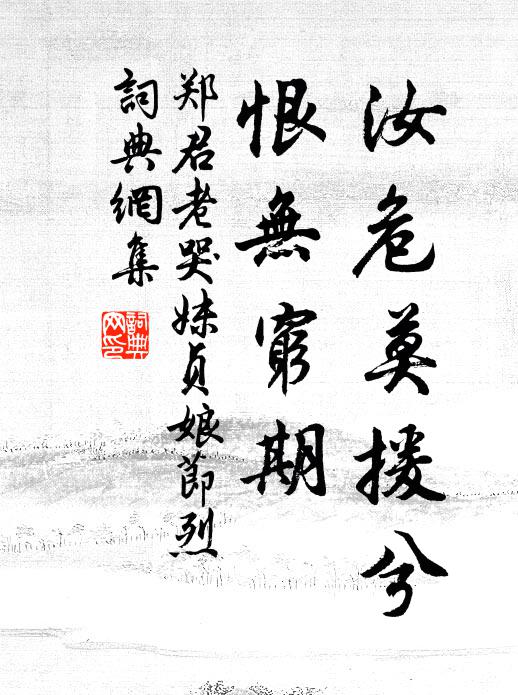 汝危莫援兮
恨無窮期
郑君老哭妹貞娘節烈
詞典網集
詞典
网印